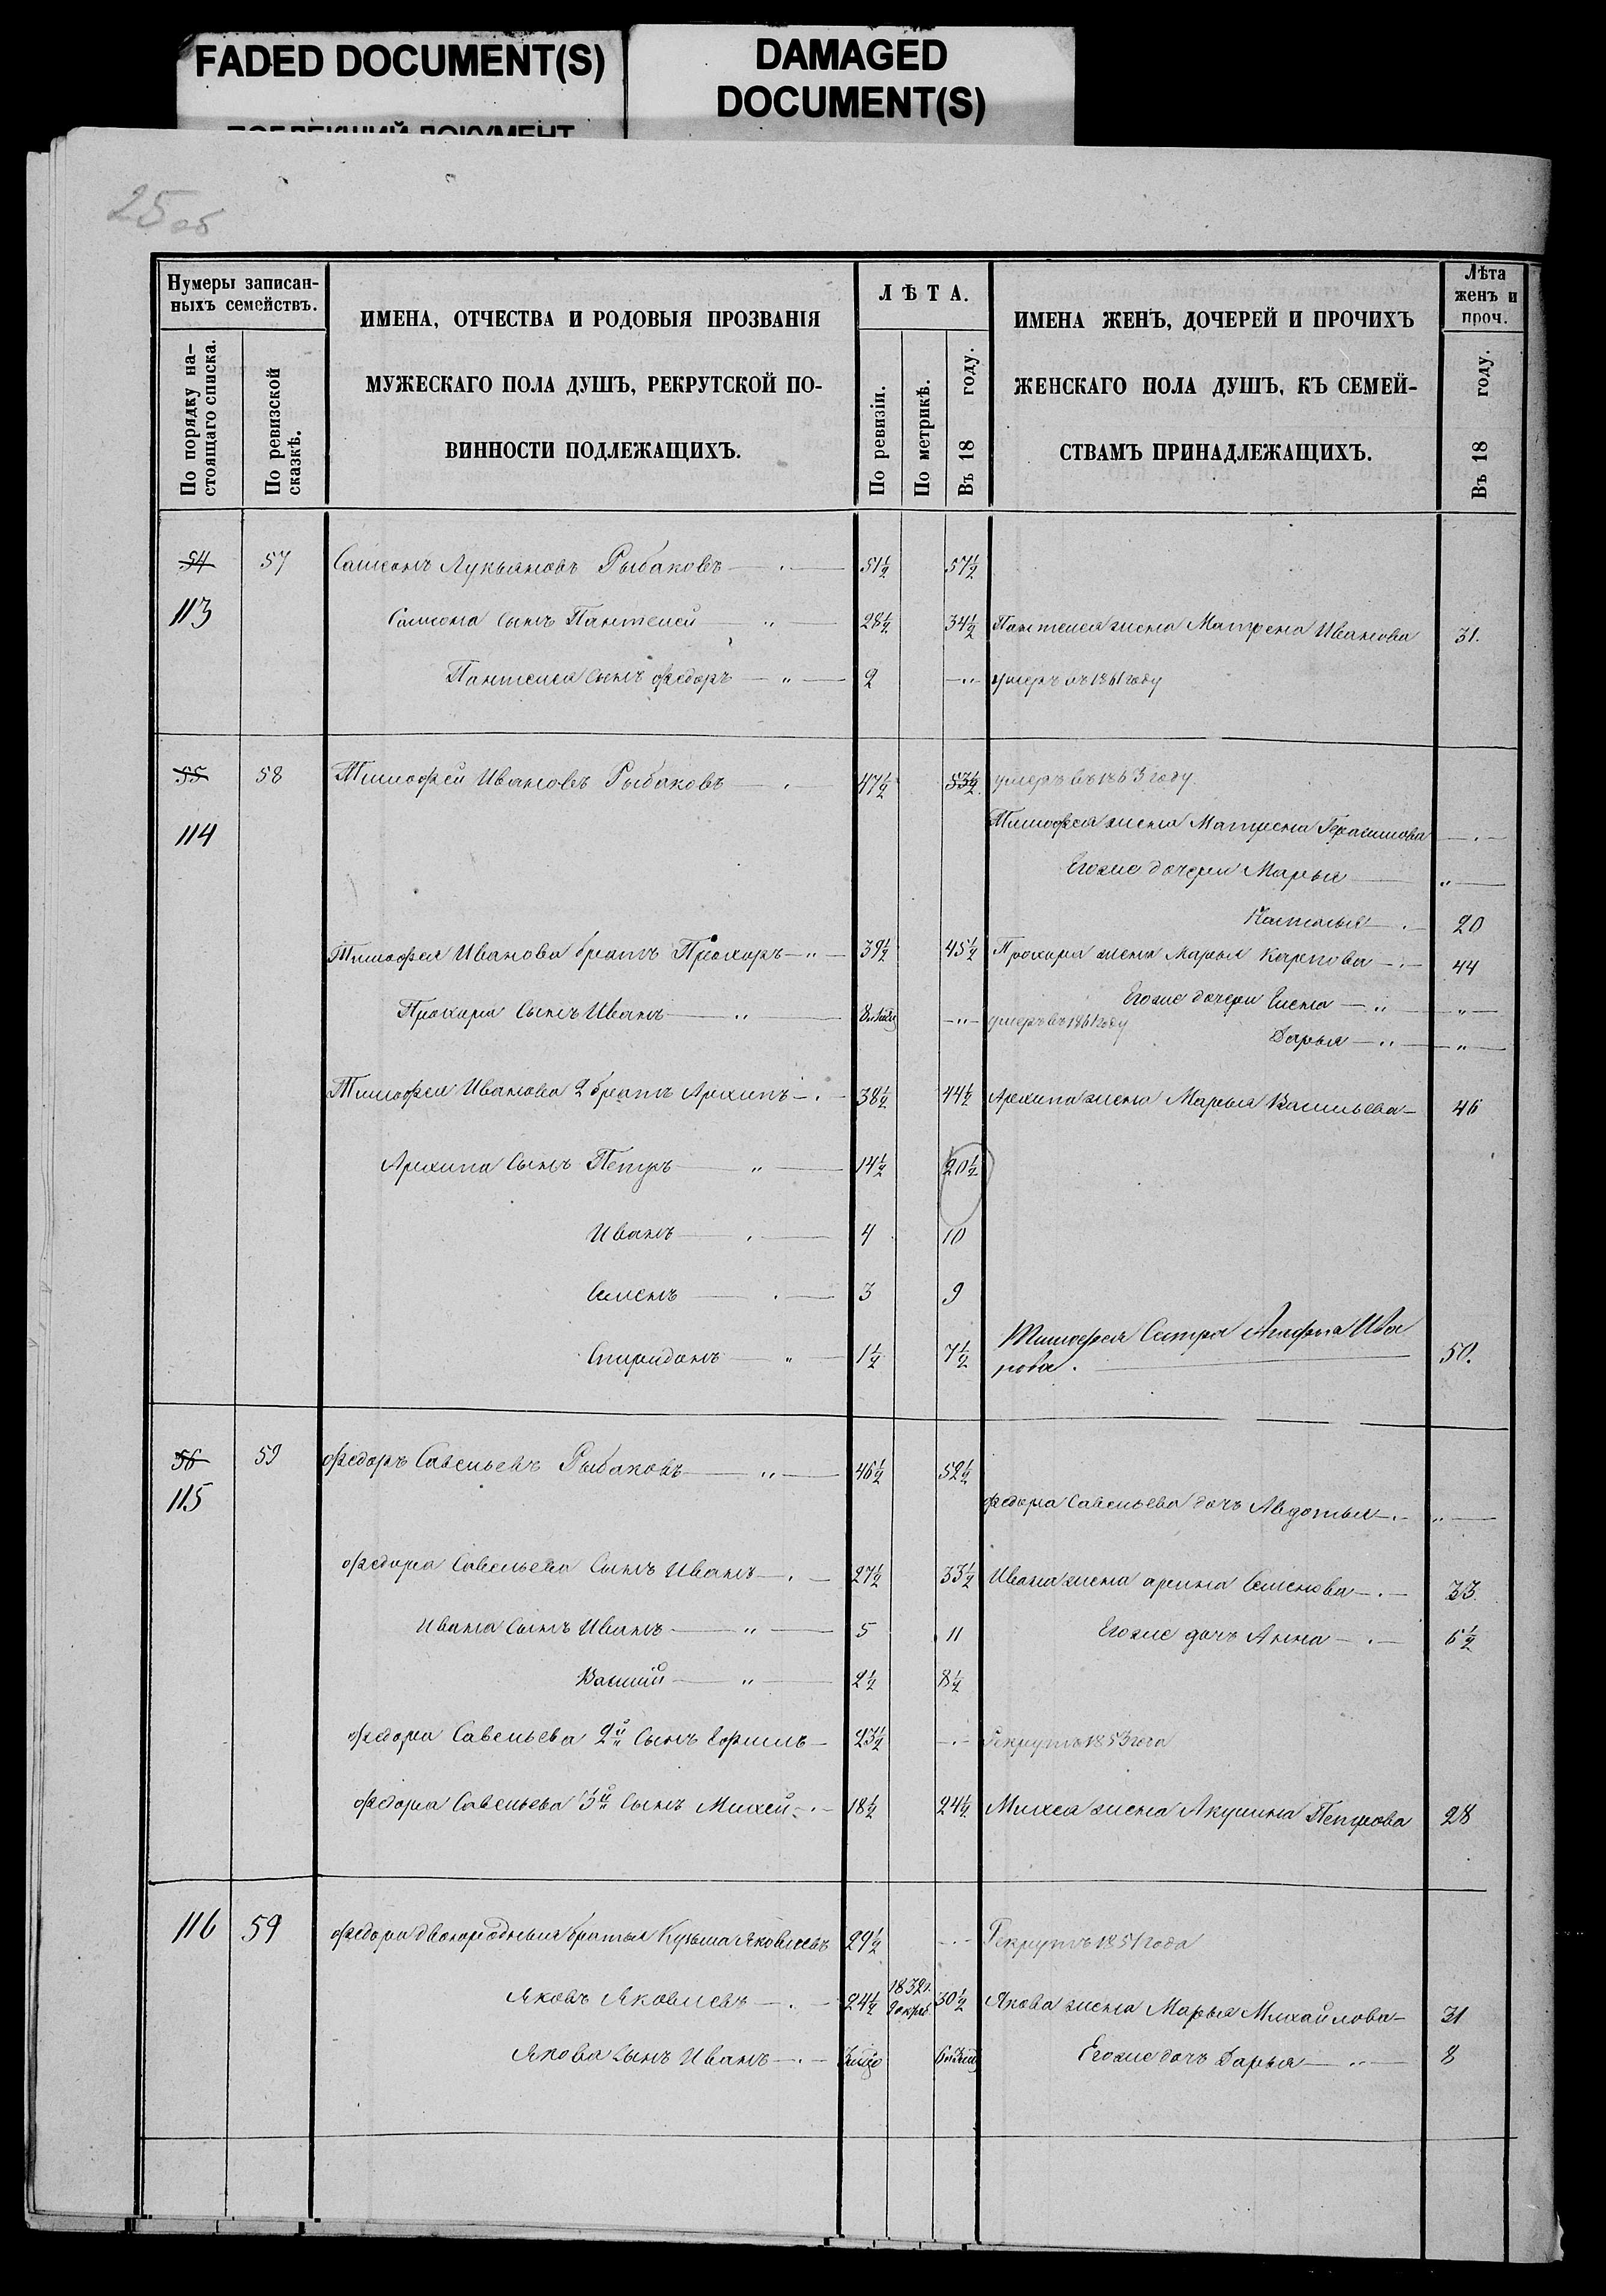 FADED DOCUMENT(S)
DAMAGED
DOCUMENT(S)
25 об
Нумеры записан-
ныхъ семействъ.
По порядку на-
стоящаго списка.
По ревизской
сказкѣ.
ИМЕНА, ОТЧЕСТВА И РОДОВЫЯ ПРОЗВАНІЯ
МУЖЕСКАГО ПОЛА ДУШЪ, РЕКРУТСКОЙ ПО-
ВИННОСТИ ПОДЛЕЖАЩИХЪ.
ЛѢТА.
По ревизіи.
По метрикѣ.
Въ 18 году.
ИМЕНА ЖЕНЪ, ДОЧЕРЕЙ И ПРОЧИХЪ
ЖЕНСКАГО ПОЛА ДУШЪ, КЪ СЕМЕЙ-
СТВАМЪ ПРИНАДЛЕЖАЩИХЪ.
Лѣта
женъ и
проч.
Въ 18 году.
54 57 Самсонъ Лукьяновъ Рыбаковъ 51½ 57½
113 Самсона сынъ Пантелей 28½ 34½ Пантелея жена Матрена Иванова 31.
Пантелея сынъ Федоръ 2 умеръ въ 1861 году
55 58 Тимофей Ивановъ Рыбаковъ 47½ 53½ умеръ въ 1863 году.
114 Тимофея жена Матрена Герасимова
Егоже дочери Марья
Наталья 20
Тимофея Иванова братъ Прохоръ 39½ 45½ Прохора жена Марья Карпова 44
Егоже дочери Елена
Прохора сынъ Иванъ умеръ въ 1861 году
Дарья
Тимофея Иванова 2 братъ Архипъ 38½ 44½ Архипа жена Марья Васильева 46
Архипа сынъ Петръ 14½ 20½
Иванъ 4 10
Семенъ 3 9
Спиридонъ 1½ 7½ Тимофея Сестра 50.
56 59 Федоръ Савельевъ Рыбаковъ 46½ 52½
115
Федора Савельева дочь Авдотья
Федора Савельева сынъ Иванъ 27½ 33½ Ивана жена Арина Семенова 33.
Ивана сынъ Иванъ 5 11 Егоже дочь Анна 6½
Василій 2½ 8½
Федора Савельева 2й сынъ 23½ Рекрутъ 1853 года
Федора Савельева 3й сынъ Михей 18½ 24½ Михея жена Акулина Петрова 28
116 59 Федора двоюродныя братья Кузьма Яковлевъ 29½ Рекрутъ 1851 года
Яковъ Яковлевъ 24½ 1832 г. 30½ Якова жена Марья Михайлова 31
Якова сынъ Иванъ Егоже дочь Дарья 8